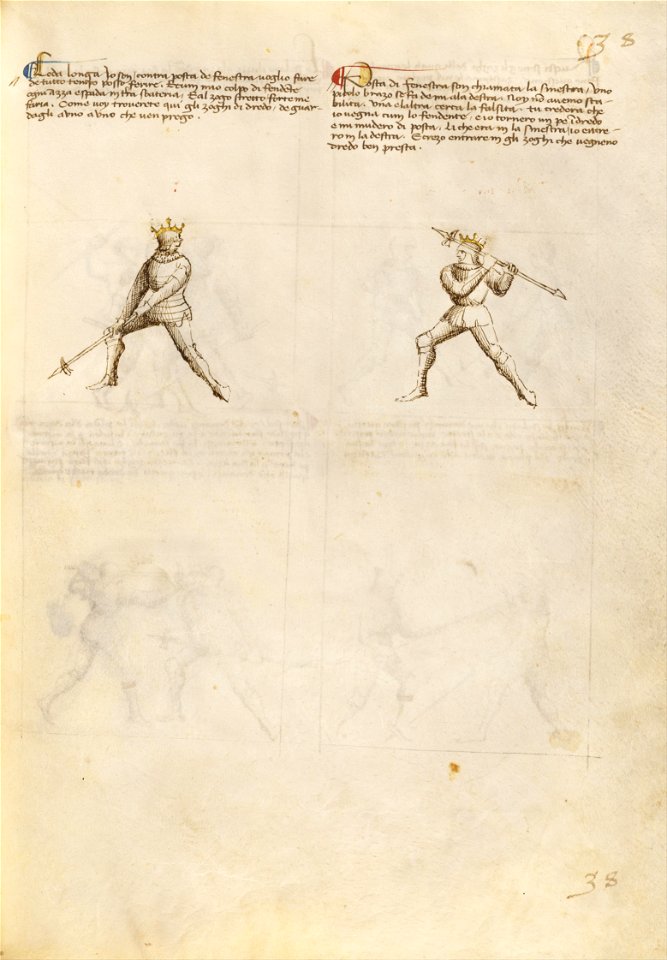 38
Coda longa Io son contra posta de fenestra voglio fare
de tutto tempo posso ferire. E cum mio colpo di fendēte
ogni azza e spada in tra sbateria. E al zogo stretto forte me
faria. Come voy trovarere qui gli zoghi di dredo, de guar-
dagli a uno a uno che ven prego.
Posta di fenestra son chiamata la sinestra, uno
picolo brazo se fa de mi a la destra. Noy nō avemo sta-
bilita. Una e l altra cercha la falsita. tu credera che
io vegna cum lo fendente, e io tornero un pe ī dredo
e mi mudero di posta. Li che era in la sinestra io entre-
ro in la destra. E crezo entrare in gli zoghi che vegneno
dredo ben presta.
38